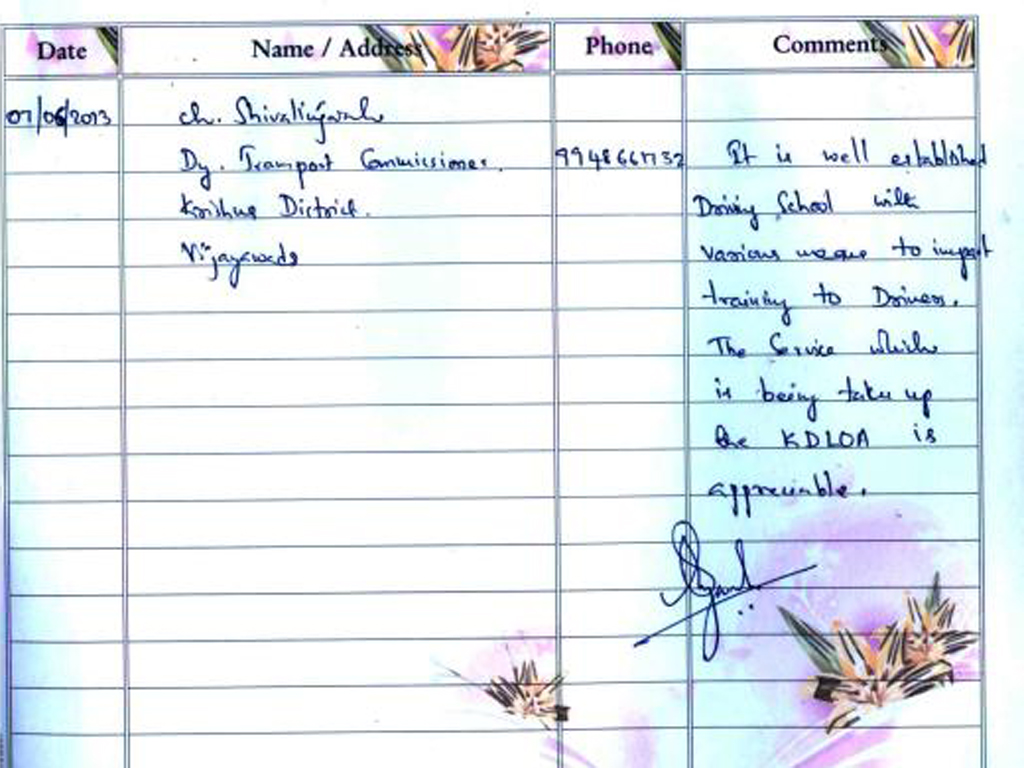 Date Name / Address Phone Comments
07/06/2013 Ch. Shivalingaiah
Dy. Transport Commissioner. 9948661732 It is well established
Krishna District. Driving School with
Vijayawada various means to impart
training to Drivers.
The Service which
is being take up
the KDLOA is
appreciable.